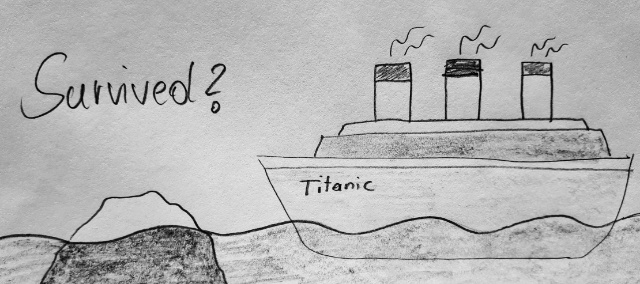 Survived?
Titanic